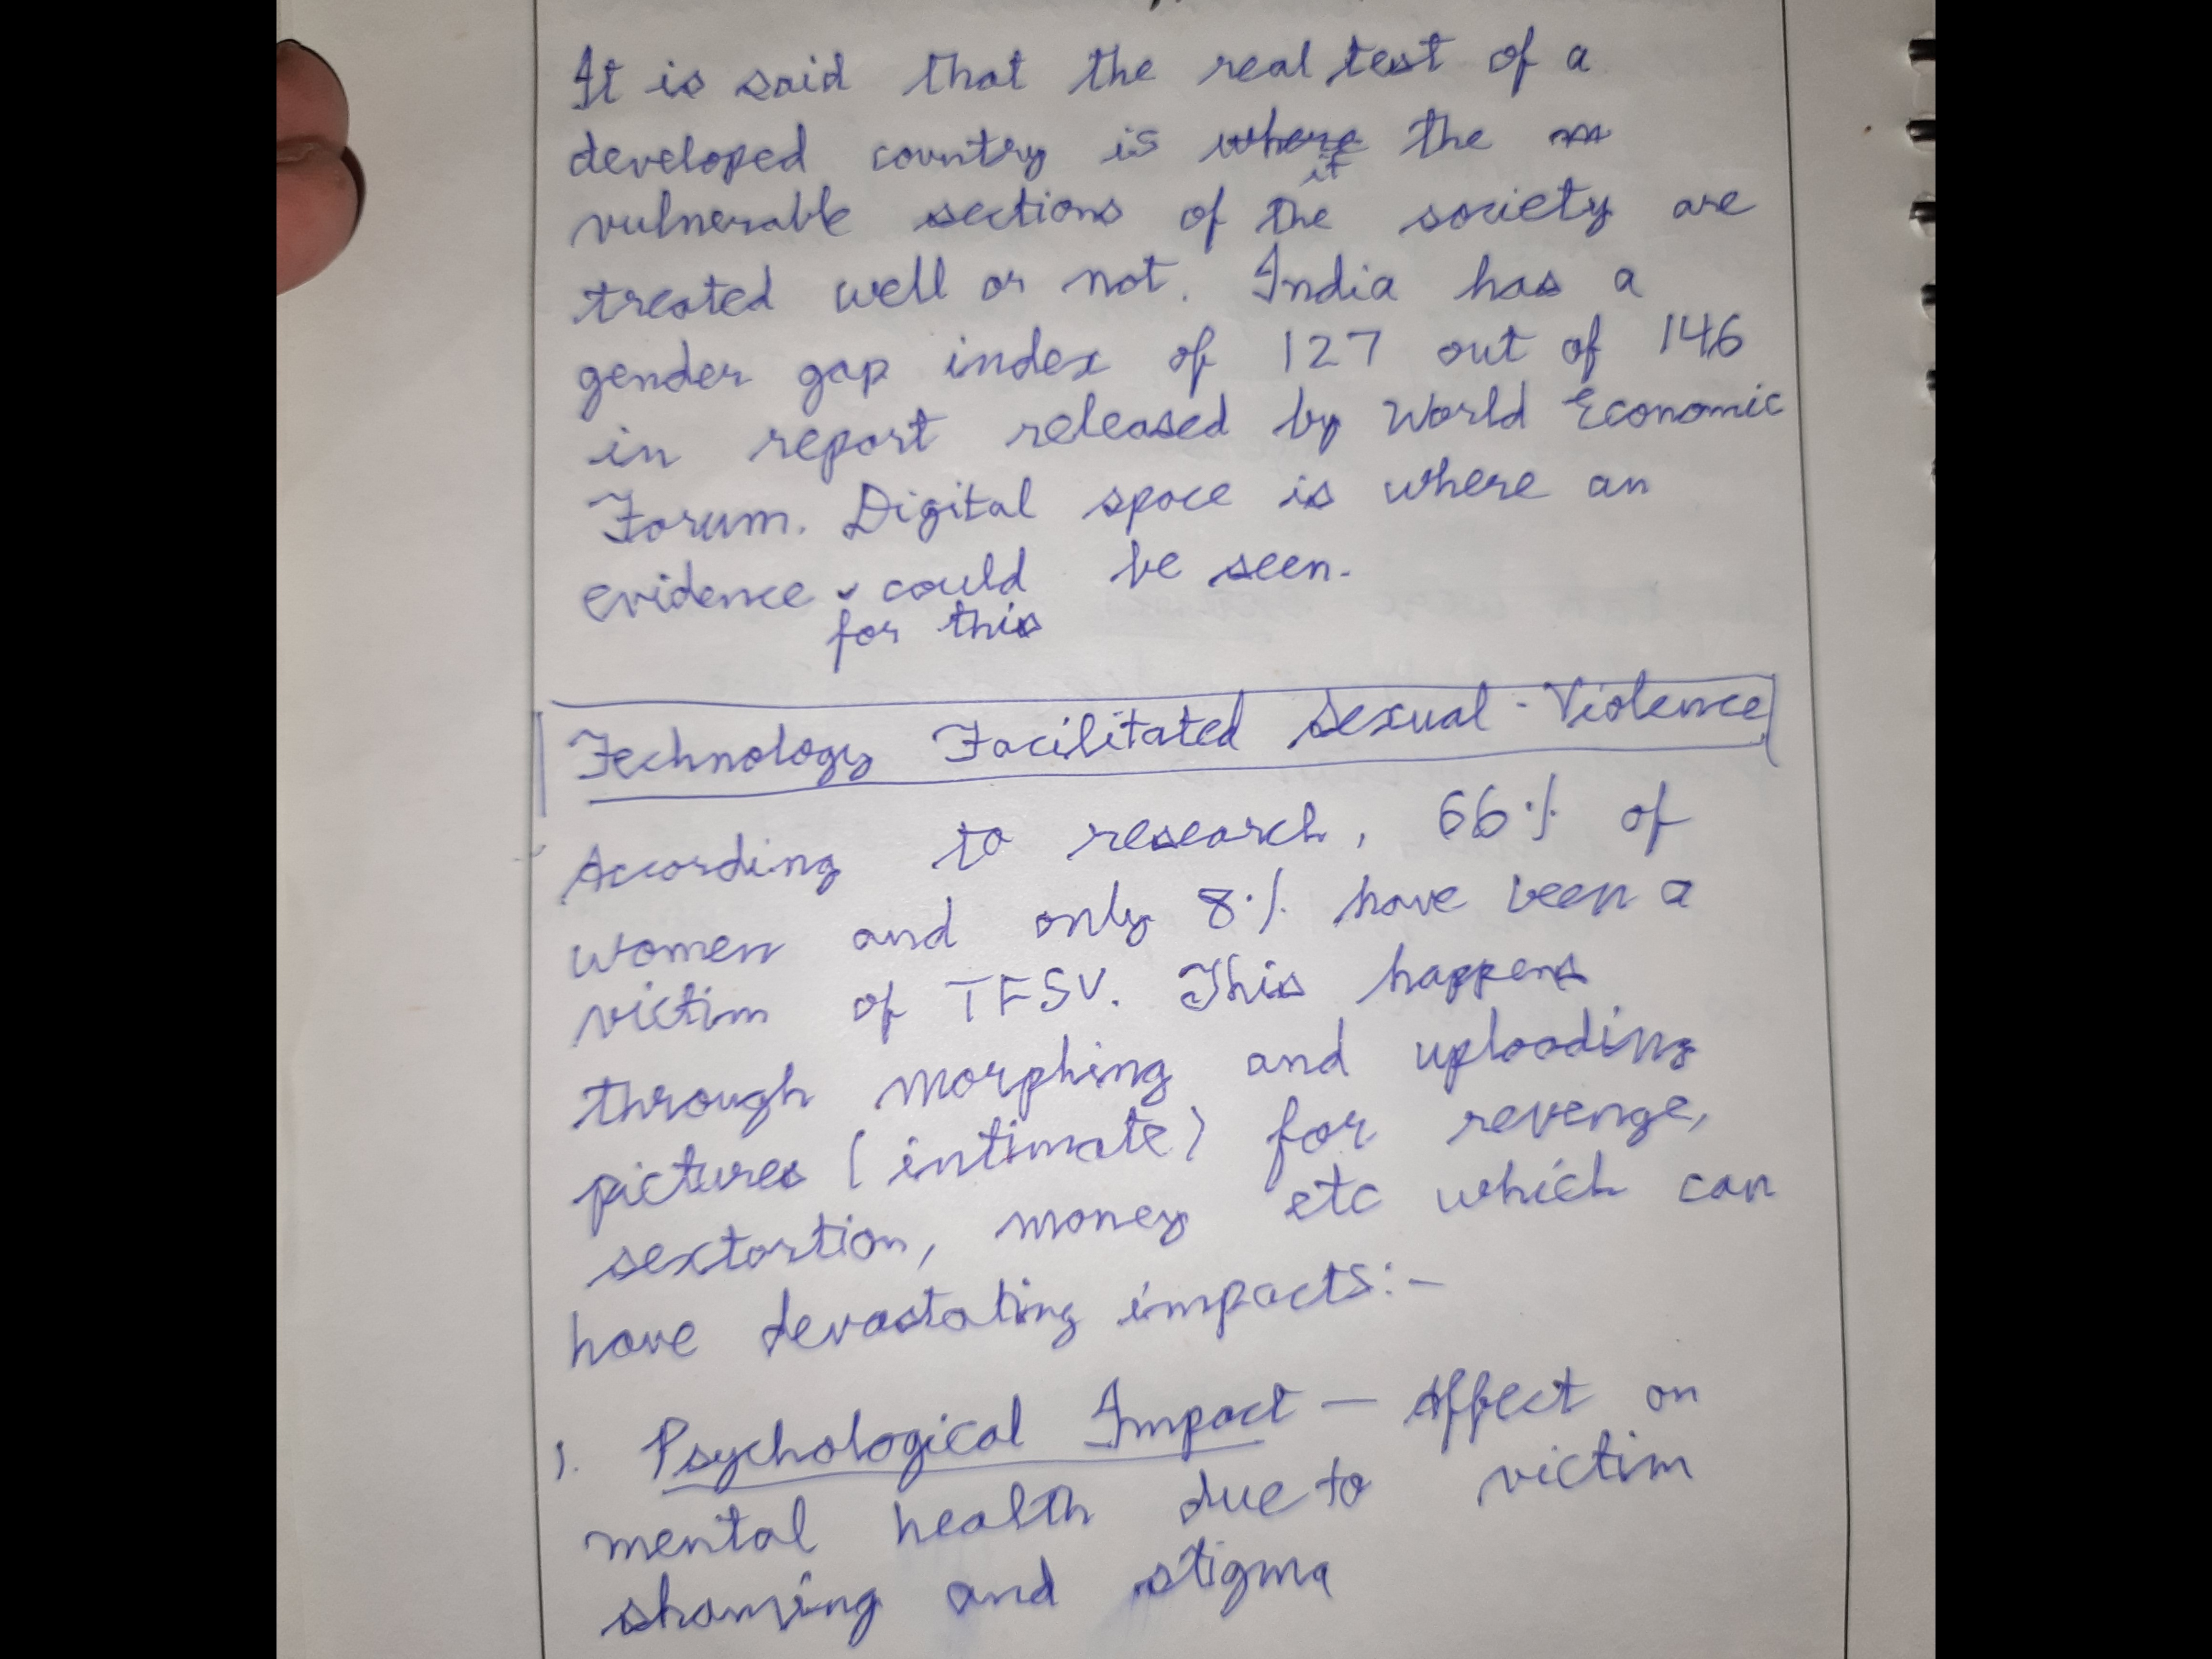 It is said that the real test of a
developed country is where the m
it
vulnerable sections of the society are
treated well or not. India has a
gender gap index of 127 out of 146
in report released by World Economic
Forum. Digital space is where an
evidence ✓ could be seen.
for this
Technology Facilitated Sexual-Violence
According to research, 66% of
women and only 8% have been a
victim of TFSV. This happens
through morphing and uploading
pictures (intimate) for revenge,
sextortion, money etc which can
have devastating impacts:-
1. Psychological Impact - Affect on
mental health due to victim
shaming and stigma